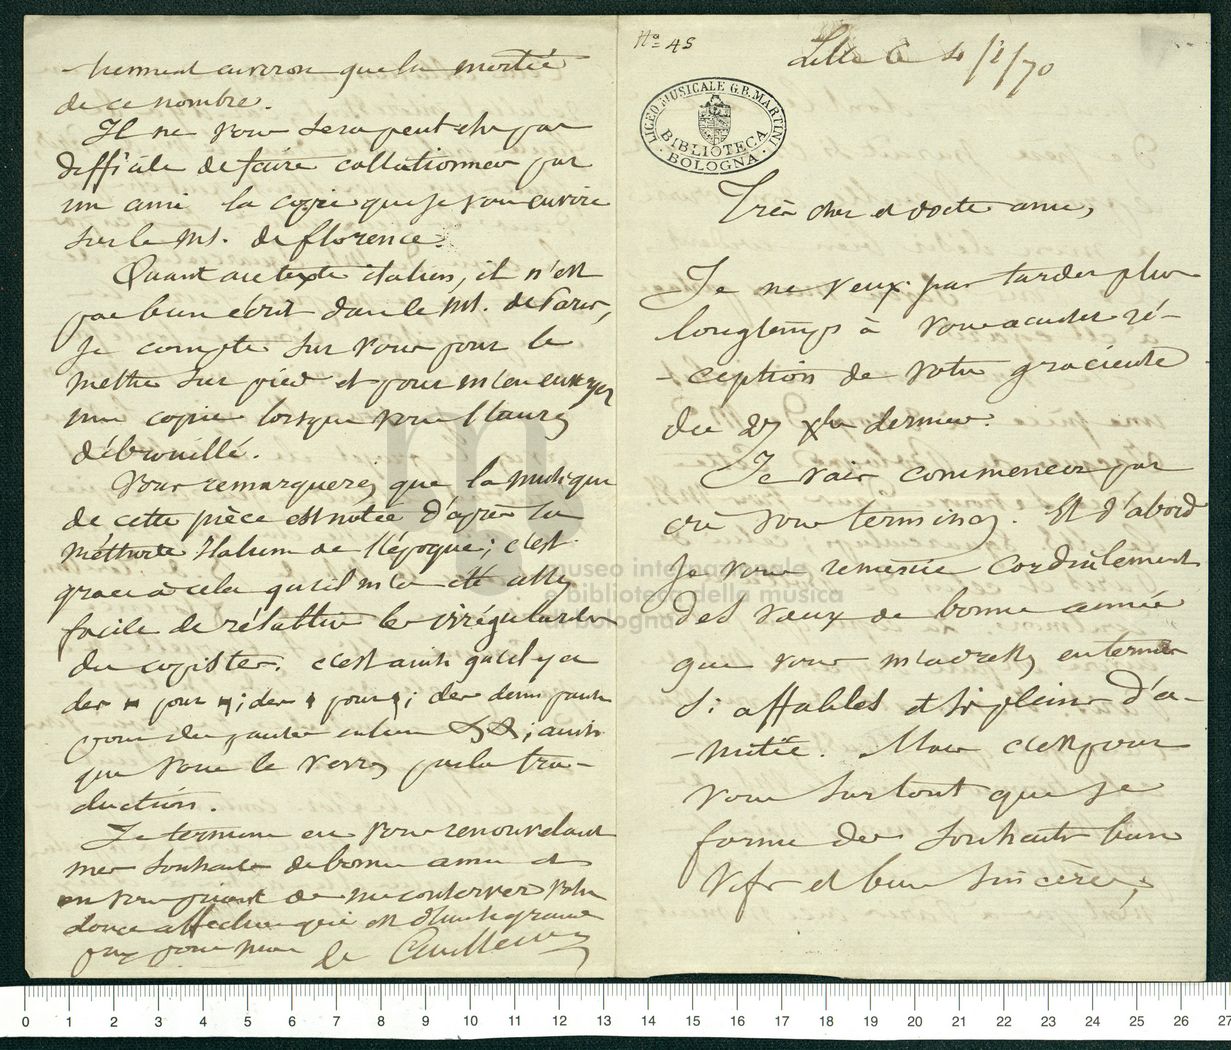 Nº 45
Lille 4/1/70
LICEO MUSICALE G.B. MARTINI
BIBLIOTECA
BOLOGNA
Très cher et docte ami,
Je ne veux pas tarder plus
longtemps à vous accuser ré-
-ception de votre gracieuse
du 27 Xbre dernier.
Je vais commencer par
où vous terminez. Et d'abord
je vous remercie cordialement
des vœux de bonne année
que vous m'adressez en termes
si affables et si pleins d'a-
-mitié. Mais c'est pour
vous surtout que je
forme des souhaits bien
vifs et bien sincères,
-tiennent environ que la moitié
de ce nombre.
Il ne vous sera peut être pas
difficile de faire collationner par
un ami la copie que je vous envoie
sur le MS. de florence.
Quant au texte italien, il n'est
pas bien écrit dans le MS. de Paris,
je compte sur vous pour le
mettre sur pied et pour m'en envoyer
une copie lorsque vous l'aurez
débrouillé.
Vous remarquerez que la musique
de cette pièce est notée d'après la
méthode Italienne de l'époque; c'est
grace à cela qu'il m'a été assez
facile de rétablir les irrégularités
du copiste. c'est ainsi qu'il y a
des pour ; des pour ; des demi pauses
pour des pauses ; ainsi
que vous le verrez par la tra-
duction.
Je termine en vous renouvelant
mes souhaits de bonne année et
en vous priant de me conserver votre
douce affection qui est d'un si grand
prix pour moi
de Coussemaker
museo internazionale
e biblioteca della musica
di bologna
0 1 2 3 4 5 6 7 8 9 10 11 12 13 14 15 16 17 18 19 20 21 22 23 24 25 26 27